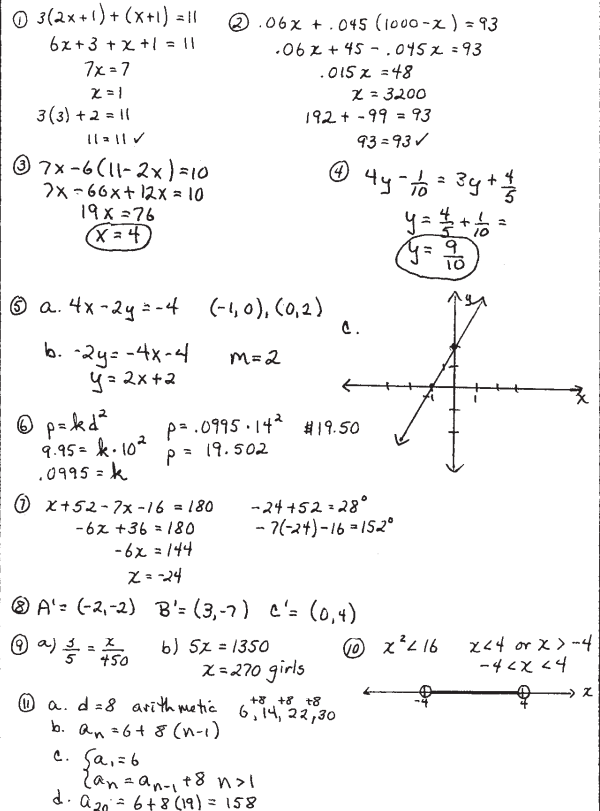 ① 3(2x+1)+(x+1)=11
6x+3+x+1=11
7x=7
x=1
3(3)+2=11
11=11 ✓
② .06x + .045(1000-x)=93
.06x+45-.045x=93
.015x=48
x=3200
192+-99=93
93=93 ✓
③ 7x-6(11-2x)=10
7x-66x+12x=10
19x=76
x=4
④ 4y-1/10=3y+4/5
y=4/5+1/10=
y=9/10
⑤ a. 4x-2y=-4 (-1,0),(0,2)
b. -2y=-4x-4 m=2
y=2x+2
c.
y
-1 1 x
⑥ p=kd² p=.0995·14² $19.50
9.95=k·10² p=19.502
.0995=k
⑦ x+52-7x-16=180 -24+52=28°
-6x+36=180 -7(-24)-16=152°
-6x=144
x=-24
⑧ A'=(-2,-2) B'=(3,-7) C'=(0,4)
⑨ a) 3/5=x/450 b) 5x=1350
x=270 girls
⑩ x²<16 x<4 or x>-4
-4<x<4
-4 4 x
⑪ a. d=8 arithmetic 6,14,22,30
+8 +8 +8
b. aₙ=6+8(n-1)
c. { a₁=6
aₙ=aₙ₋₁+8 n>1
d. a₂₀=6+8(19)=158